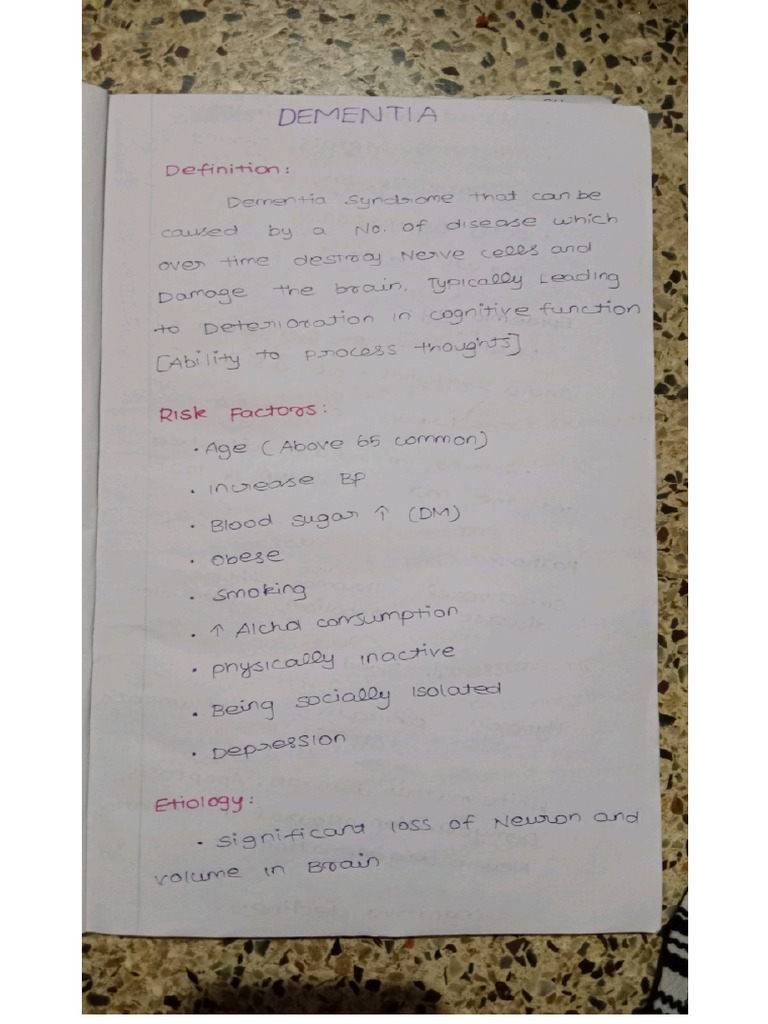 DEMENTIA
Definition:
Dementia syndrome that can be
caused by a No. of disease which
over time destroy Nerve cells and
Damage the brain. Typically Leading
to Deterioration in cognitive function
[Ability to process thoughts]
Risk Factors:
• Age (Above 65 common)
• increase BP
• Blood sugar ↑ (DM)
• obese
• smoking
• ↑ Alchol consumption
• physically inactive
• Being socially isolated
• Depression
Etiology:
• significant loss of Neuron and
volume in Brain